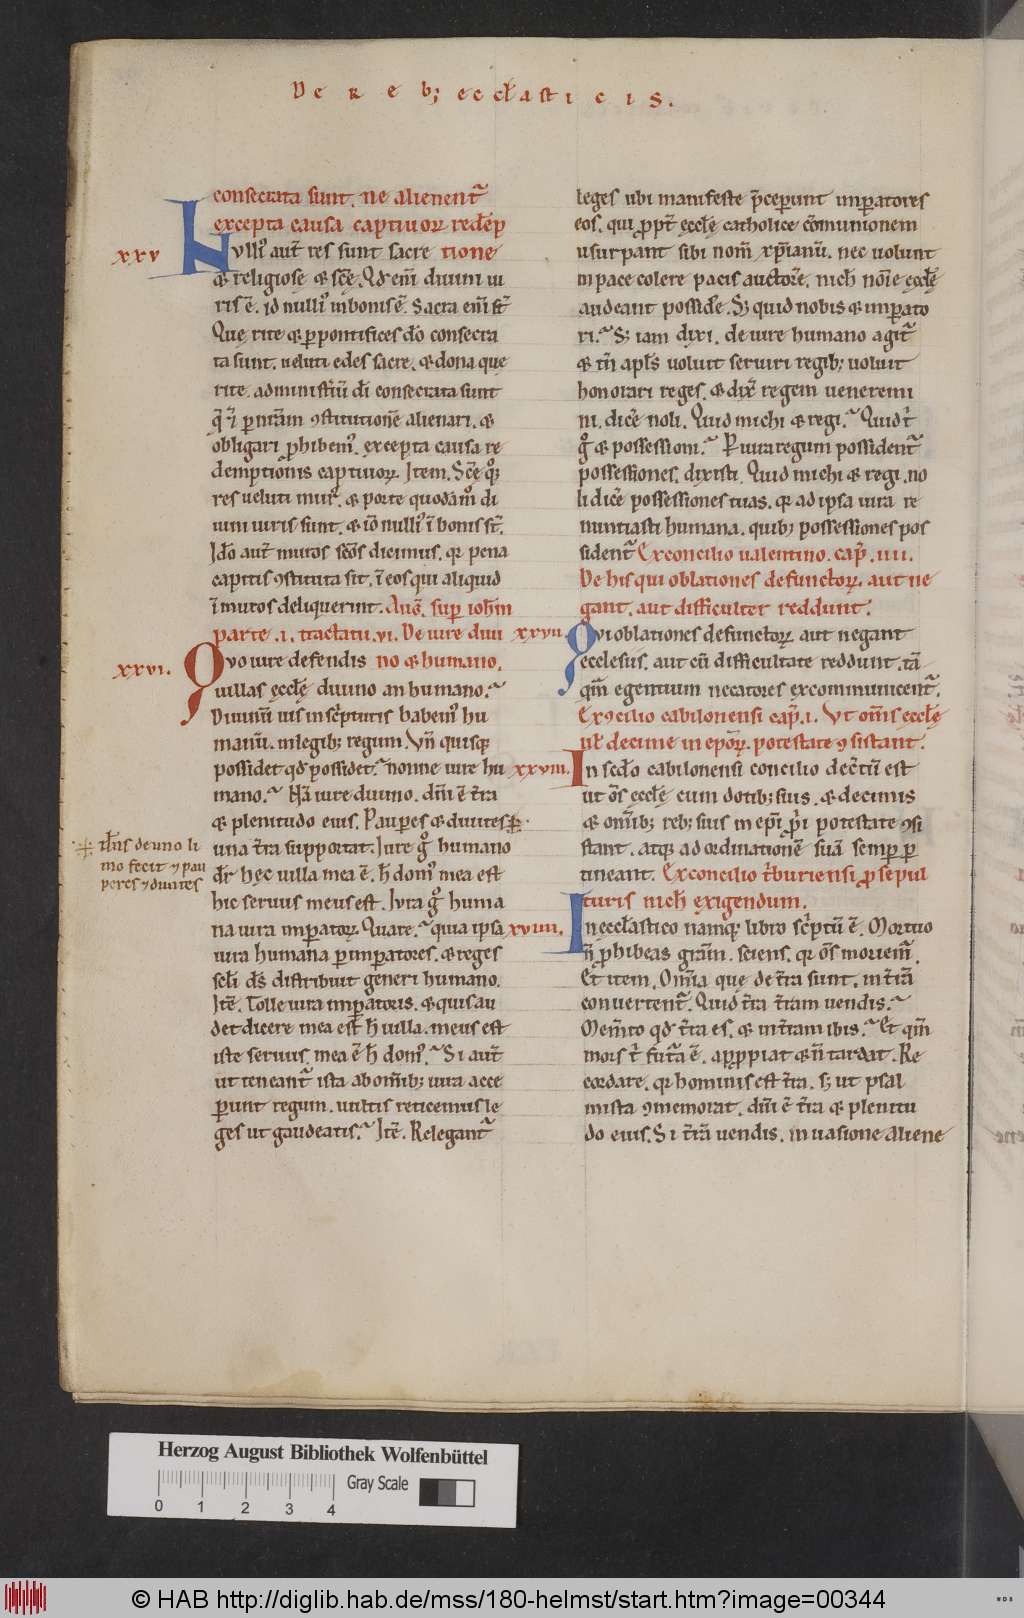 De reb; eccl̄asticis.
consecrata sunt. ne alienent᷑
excepta causa captiuoꝝ redēp
xxv
Nvll᷒ aut̄ res sunt sacre tione
& religiose & sc̄e. Qd̓ eni̅ diuini iu
ris ē. id null᷒ in bonis ē. Sacra eni̅ st̄
Quę rite & ꝑ pontifices dō consecra
ta sunt. ueluti edes sacre. & dona que
rite. ad ministiu̅ di̅ consecrata sunt
ꝑ nr̄am ꝯstitutionē alienari. &
obligari ꝓhibem᷒. excepta causa re
demptionis captiuoꝝ. Item. Sc̄e quoꝫ
res ueluti muri. & porte quodam̊ di
uini iuris sunt. & iō null᷒ ī bonis st̄.
Idō aut̄ muros sc̄os dicimus. qꝛ pena
capitis ꝯstituta sit. ī eos qui aliquid
ī muros deliquerint. Auḡ. sup̄ ioh̄m
parte .i. tractatu .vi. De iure diui
xxvi.
Qvo iure defendis no & humano.
uillas eccłę diuino an humano.
Diuinu̅ ius in sc̄pturis habem᷒ hu
manu̅. in legib; regum. Vn̄ quisqꝫ
possidet qd̓ possidet. nonne iure hu
mano. Nā iure diuino. dn̄i ē t̄ra
& plenitudo eius. Pauꝑes & diuites
una t̄ra supportat. Iure g̊ humano
dr̄ hęc uilla mea ē. h̄ dom᷒ mea est
hic seruus meus est. Iura g̊ huma
na iura imꝑatoꝝ. Quare. quia ipsa
iura humana ꝑ imꝑatores. & reges
sc̄li ds̄ distribuit generi humano.
Itē. Tolle iura imꝑatoris. & quis au
det dicere mea est h̄ uilla. meus est
iste seruus. mea ē h̄ dom᷒. Si aut̄
ut teneant᷑ ista ab om̄ib; iura acce
ꝑunt regum. uultis reticemus le
ges ut gaudeatis. Itē. Relegant᷑
ił̄ns de uno li
mo fecit ⁊ pau
peres ⁊ diuites
leges ubi manifeste p̄ceꝑunt imꝑatores
eos. qui ꝓpt̄ eccłę catholice cōmunionem
usurpant sibi nom̄ xp̄ianu̅. nec uolunt
in pace colere pacis auctorē. nich̄ noīe eccłę
audeant possidē. S; quid nobis & imꝑato
ri. S; iam dixi. de iure humano agit᷑
& tn̄ apl̄s uoluit seruiri regib; uoluit
honorari reges. & dix̄ regem ueneremi
ni. dicē noli. Quid michi & regi. Quid t̄
g̊ & possessioni. Ꝑ iura regum possident᷑
possessiones. dixisti. Quid michi & regi. no
li dicē possessiones tuas. qꝛ ad ipsa iura re
nuntiasti humana. quib; possessiones pos
sident᷑. Ex concilio ualentino. cap̄. iiii.
De his qui oblationes defunctoꝝ. aut ne
gant. aut difficulter reddunt.
xxvii.
Qvi oblationes defunctoꝝ aut negant
ecclesiis. aut cū difficultate reddunt. tā
qm̄ egentium necatores excommunicent᷑.
Ex ꝯcilio cabilonensi cap̄. i. Vt om̄s eccłę
uł decime in epōꝝ. potestate ꝯsistant.
xxviii.
In sc̄do cabilonensi concilio dec̄tu̅ est
ut ōs eccłę cum dotib; suis. & decimis
& om̄ib; reb; suis in epī p̄ri potestate ꝯsi
stant. atqꝫ ad ordinationē suā semꝑ ꝑ
tineant. Ex concilio t̄buriensi ꝓ sepul
turis nich̄ exigendum.
xxviiii.
In eccl̄astico namqꝫ libro sc̄ptu̅ ē. Mortuo
n̄ ꝓhibeas grām. sciens. qꝛ oms̄ moriem᷑.
Et item. Om̄a quę de t̄ra sunt. in t̄rā
conuertent᷑. Quid t̄ra t̄ram uendis.
Mem̄to qd̓ t̄ra es. & in t̄ram ibis. Et qm̄
mors t̄ fut̄a ē. apꝓpiat & n̄ tardat. Re
cordare. qꝛ hominis est t̄ra. s; ut psal
mista ꝯmemorat. dn̄i ē t̄ra & plenitu
do eius. Si t̄rā uendis. inuasione aliene
Herzog August Bibliothek Wolfenbüttel
Gray Scale
0 1 2 3 4
© HAB http://diglib.hab.de/mss/180-helmst/start.htm?image=00344